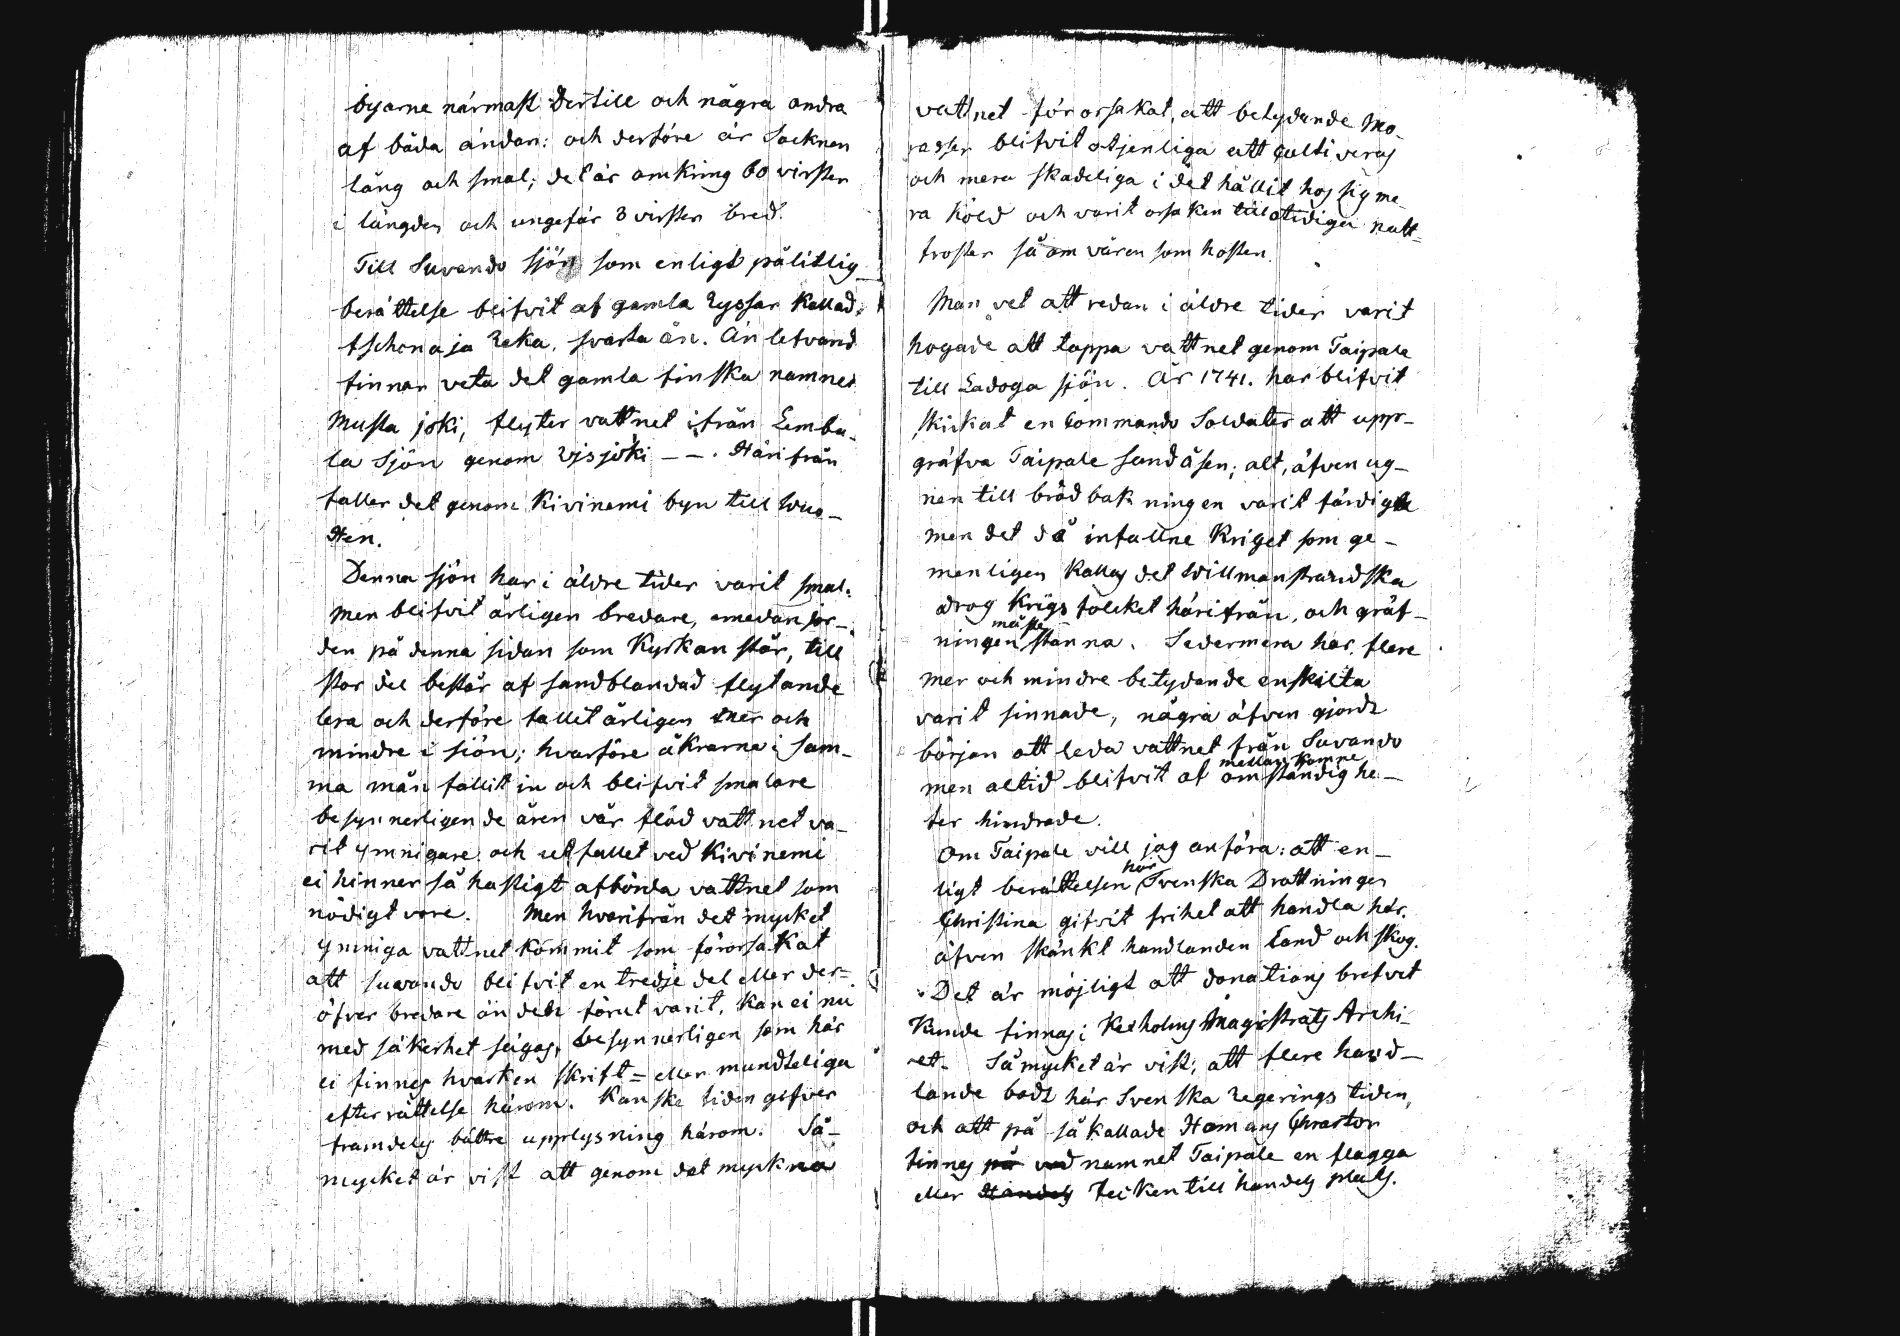 byarne närmast dertill och några andra
af båda ändan: och derföre är Socknen
lång och smal; det är omkring 60 virster
i längden och ungefär 3 virster bred.
Till Suvando sjön som enligt pålitlig
berättelse blifvit af gamla Ryssar kallad,
tschonaja Reka, svarta ån. Än lefvand
finnar veta det gamla finska namnet
Musta joki, flyter vattnet ifrån Lemba-
la Sjön genom Visjoki — —. Härifrån
faller det genom Kivinemi byn till Wuo-
xen.
Denna sjön har i äldre tider varit smal.
men blifvit årligen bredare, emedan jor-
den på denna sidan som Kyrkan står, till
stor del består af sandblandad flytande
lera och derföre fallit årligen mer och
mindre i sjön; hvarföre åkrarna i sam-
ma mån fallit in och blifvit smalare
besynnerligen de åren vår flöd vattnet va-
rit ymnigare och utfallet ved Kivinemi
ei hinner så hastigt afbörda vattnet som
nödigt vore. Men hvarifrån det mycket
ymniga vattnet kommit som förorsakat
att suvando blifvit en tredje del eller der=
öfver bredare än det förut varit, kan ei nu
med säkerhet säigas, besynnerligen som här
ei finnes hvarken skrift= eller mundteliga
efterrättelse härom. Kanske tiden gifver
framdeles bättre upplysning härom. Så-
mycket är vist att genom det myckna
vattnet förorsakat, att betydande Mo-
rasser blifvit otjenliga att cultiveras
och mera skadeliga i det hållit hos sig me-
ra köld och varit orsaken till otidiga natt=
froster så om våren som hösten.
Man vet att redan i äldre tider varit
hogade att tappa vattnet genom Taipale
till Ladoga sjön. År 1741. har blifvit
skickat en Commando Soldater att upp-
gräfva Taipale sandåsen; alt, äfven ug-
nen till brödbakningen varit färdig
men det då infallne Kriget som ge-
menligen kallas det Willmanstrandska
drog Krigs folcket härifrån, och gräf-
ningen måste stanna. Sedermera har flere
mer och mindre betydande enskilta
varit sinnade, några äfven gjordt
början att leda vattnet från Suvando
men altid blifvit af mellankomne omständighe-
ter hindrade.
Om Taipale vill jag anföra: att en-
ligt berättelsen har Svenska Drottningen
Christina gifvit frihet att handla här.
äfven skänkt handlanden Land och skog.
Det är möjligt att donations brefvet
kunde finnas i Kexholms Magistrats Archi-
vet. Så mycket är vist, att flere hand-
lande bodt här Svenska Regerings tiden,
och att på så kallade Homans Chartor
finnes på ved namnet Taipale en flagga
eller Handels tecken till handels plats.